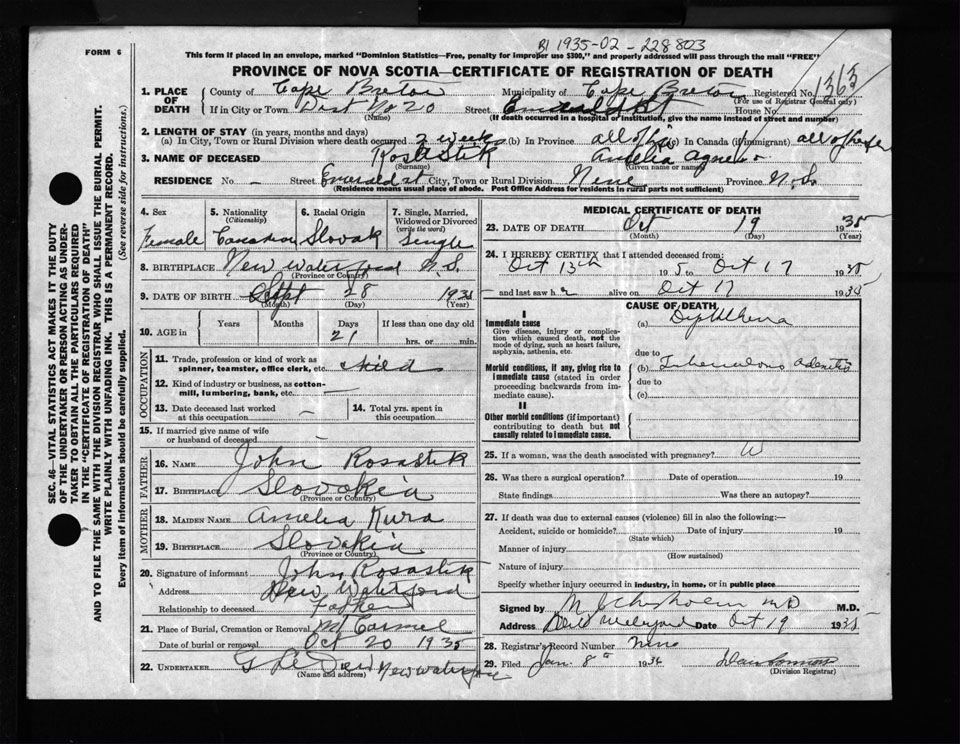 BI 1935-02-228803
FORM 6
This form if placed in an envelope, marked "Dominion Statistics—Free, penalty for improper use $300," and properly addressed will pass through the mail "FREE"
PROVINCE OF NOVA SCOTIA—CERTIFICATE OF REGISTRATION OF DEATH
1. PLACE OF DEATH
County of Cape Breton Municipality of Cape Breton Registered No. 1363
(For use of Registrar General only)
If in City or Town Dist No 20 Street Emerald St House No.
(Name) (If death occurred in a hospital or institution, give the name instead of street and number)
2. LENGTH OF STAY (in years, months and days)
(a) In City, Town or Rural Division where death occurred 3 weeks (b) In Province all of life (c) In Canada (if immigrant) all of life
3. NAME OF DECEASED Rosastik Amelia Agnes
(Surname) (Given name or names)
RESIDENCE No. - Street Emerald st City, Town or Rural Division Province N.S.
(Residence means usual place of abode. Post Office Address for residents in rural parts not sufficient)
4. Sex Female
5. Nationality (Citizenship) Canadian
6. Racial Origin Slovak
7. Single, Married, Widowed or Divorced (write the word) Single
8. BIRTHPLACE New Waterford N.S.
(Province or Country)
9. DATE OF BIRTH Sept 28 1935
(Month) (Day) (Year)
10. AGE in Years Months Days 21 If less than one day old hrs. or min.
OCCUPATION
11. Trade, profession or kind of work as spinner, teamster, office clerk, etc. child
12. Kind of industry or business, as cotton-mill, lumbering, bank, etc. —
13. Date deceased last worked at this occupation
14. Total yrs. spent in this occupation
15. If married give name of wife or husband of deceased —
FATHER
16. NAME John Rosastik
17. BIRTHPLACE Slovakia
(Province or Country)
MOTHER
18. MAIDEN NAME Amelia Kura
19. BIRTHPLACE Slovakia
(Province or Country)
20. Signature of informant John Rosastik
Address New Waterford
Relationship to deceased Father
21. Place of Burial, Cremation or Removal Mt Carmel
Date of burial or removal Oct 20 1935
22. UNDERTAKER New Waterford
(Name and address)
MEDICAL CERTIFICATE OF DEATH
23. DATE OF DEATH Oct 19 1935
(Month) (Day) (Year)
24. I HEREBY CERTIFY that I attended deceased from:
Oct 13th 1935 to Oct 17 1935
and last saw her alive on Oct 17 1935
CAUSE OF DEATH
I
Immediate cause
Give disease, injury or complication which caused death, not the mode of dying, such as heart failure, asphyxia, asthenia, etc.
(a) Diphtheria
due to
Morbid conditions, if any, giving rise to immediate cause (stated in order proceeding backwards from immediate cause).
(b) Tuberculous adenitis
due to
(c)
II
Other morbid conditions (if important) contributing to death but not causally related to immediate cause.
25. If a woman, was the death associated with pregnancy?
26. Was there a surgical operation? Date of operation 19
State findings Was there an autopsy?
27. If death was due to external causes (violence) fill in also the following:—
Accident, suicide or homicide? Date of injury 19
(State which)
Manner of injury
(How sustained)
Nature of injury
Specify whether injury occurred in industry, in home, or in public place
Signed by M. J. Chisholm MD M.D.
Address New Waterford Date Oct 19 1935
28. Registrar's Record Number
29. Filed Jan. 8th 1936
(Division Registrar)
SEC. 46—VITAL STATISTICS ACT MAKES IT THE DUTY
OF THE UNDERTAKER OR PERSON ACTING AS UNDER-
TAKER TO OBTAIN ALL THE PARTICULARS REQUIRED
IN THE "CERTIFICATE OF REGISTRATION OF DEATH"
AND TO FILE THE SAME WITH THE DIVISION REGISTRAR WHO SHALL ISSUE THE BURIAL PERMIT.
WRITE PLAINLY WITH UNFADING INK. THIS IS A PERMANENT RECORD.
Every item of information should be carefully supplied. (See reverse side for instructions.)